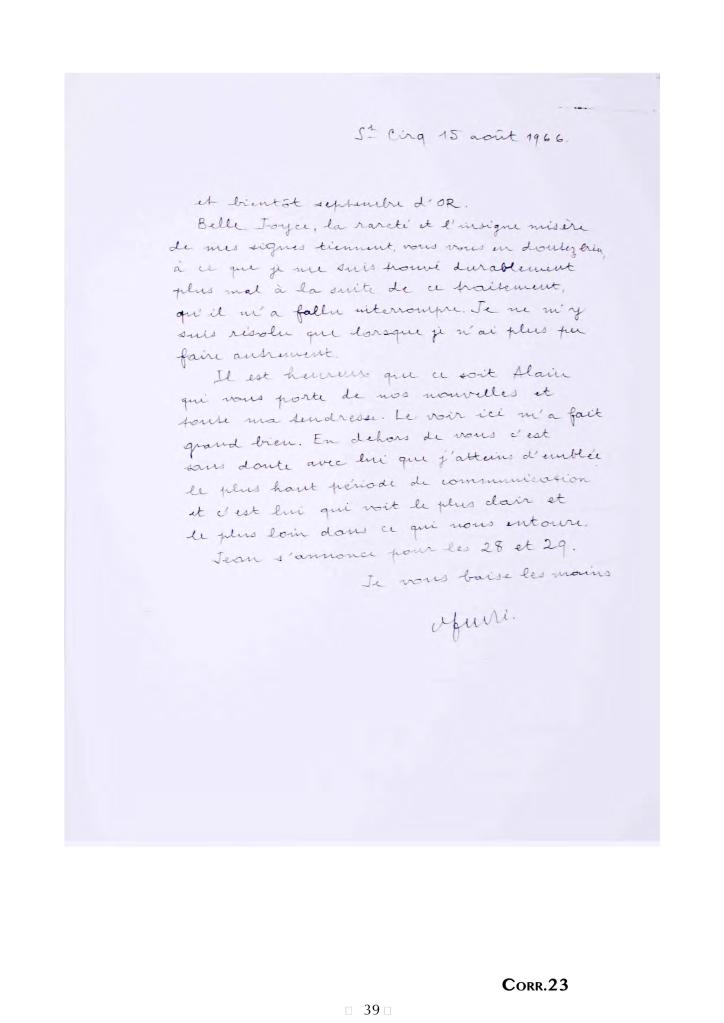 St Cirq 15 août 1966.
et bientôt septembre d'OR.
Belle Joyce, la rareté et l'insigne misère
de mes signes tiennent, vous vous en doutez bien,
à ce que je me suis trouvé durablement
plus mal à la suite de ce traitement,
qu'il m'a fallu interrompre. Je ne m'y
suis résolu que lorsque je n'ai plus pu
faire autrement.
Il est heureux que ce soit Alain
qui vous porte de nos nouvelles et
toute ma tendresse. Le voir ici m'a fait
grand bien. En dehors de vous c'est
sans doute avec lui que j'atteins d'emblée
le plus haut période de communication
et c'est lui qui voit le plus clair et
le plus loin dans ce qui nous entoure.
Jean s'annonce pour les 28 et 29.
Je vous baise les mains
CORR.23
39